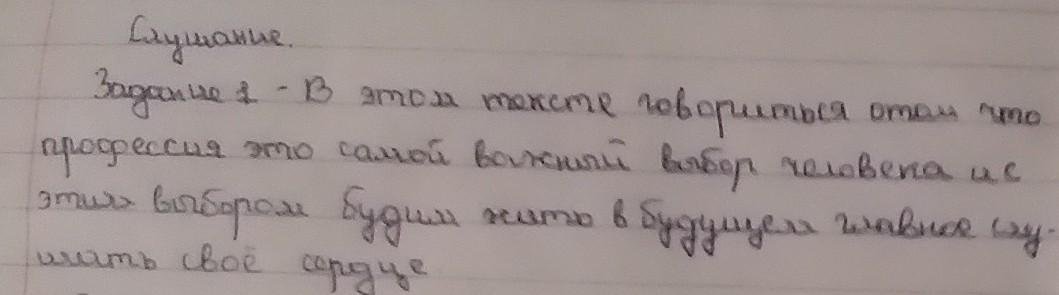 Слушание.
Задание 1 - В этом тексте говориться отом что
професcия это самой важний выбор человека и с
этим выбором будим жить в будущем главное слу-
шать своё сердце